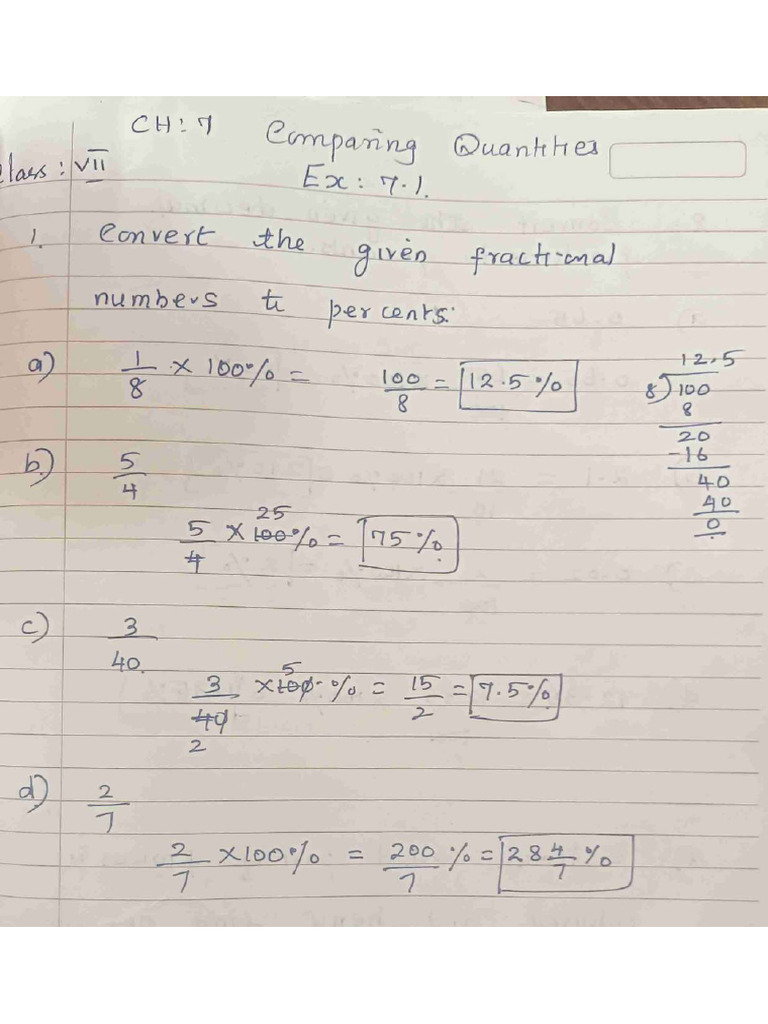 CH: 7 Comparing Quantities
Class: VII
Ex: 7.1.
1. Convert the given fractional
numbers to percents:
a) 1/8 × 100% = 100/8 = 12.5%
12.5
8)100
8
20
-16
40
40
0
b) 5/4
25
5/4 × 100% = 75%
c) 3/40
5
3/40 × 100% = 15/2 = 7.5%
2
d) 2/7
2/7 × 100% = 200/7 % = 28 4/7 %